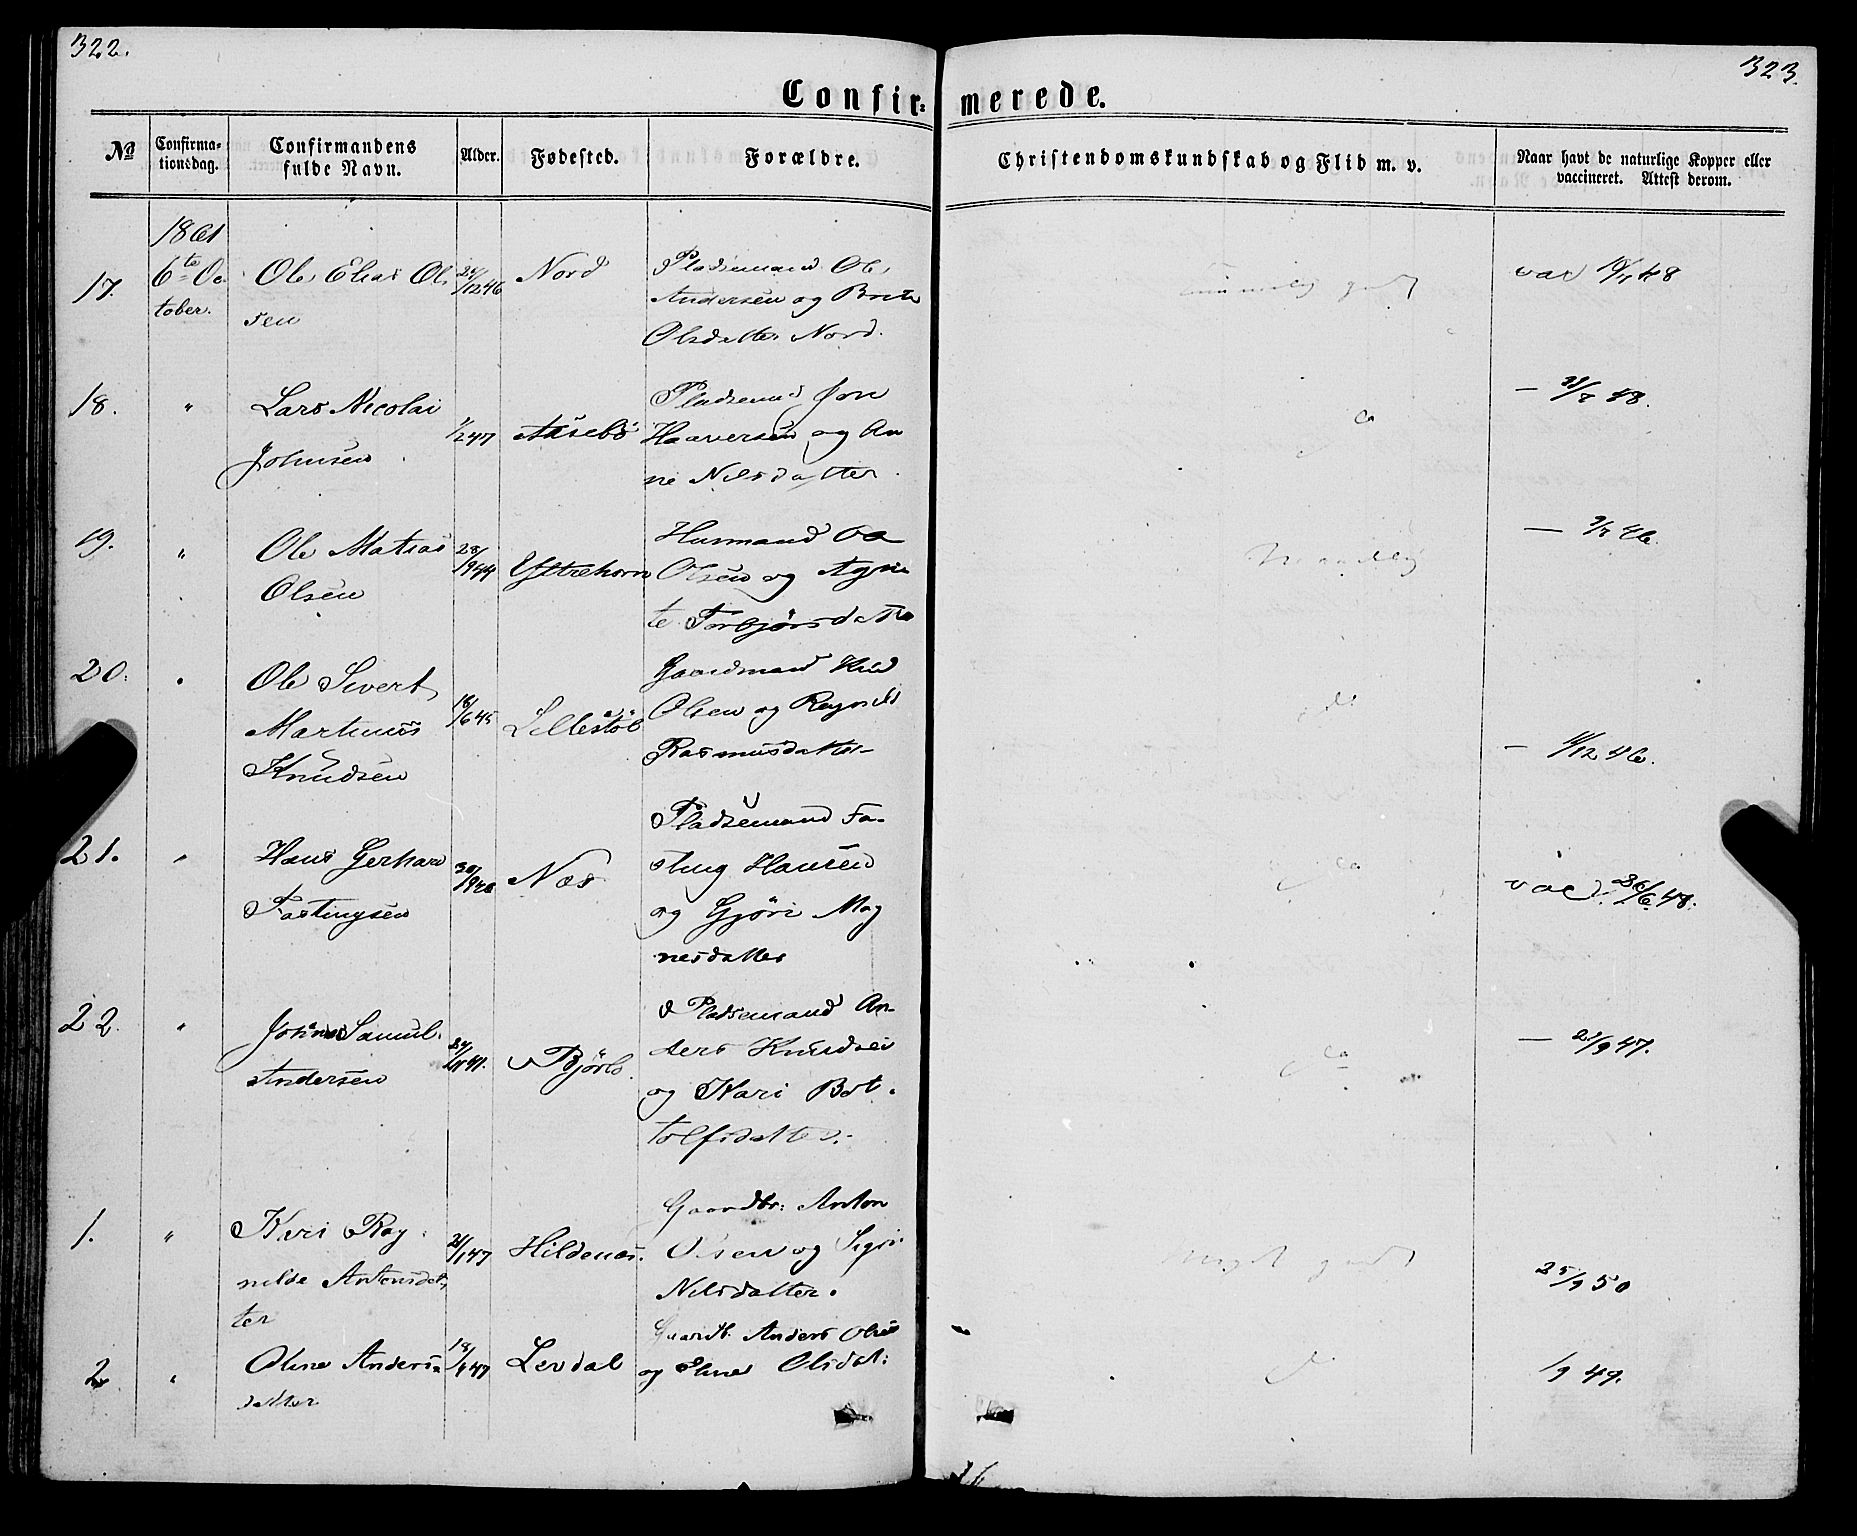 322.
323.
Confir= merede.
No
Confirma-
tionsdag.
Confirmandens
fulde Navn.
Alder.
Fødested.
Forældre.
Christendomskundskab og Flid m. v.
Naar havt de naturlige Kopper eller
vaccineret. Attest derom.
1861
17. 6te Oc
tober.
Ole Elias Ol
sen
24/12 46
Nord
Pladsemand Ole
Andersen og Brite
Olsdatter Nord.
godt
vac 19/7 48
18. "
Lars Nicolai
Johnsen
1/2 47
Aasebö
Pladsemd Jon
Haaversen og An
ne Nilsdatter
do
— 31/7 48.
19. "
Ole Matias
Olsen
28/9 44
Yttrehorn
Husmand
Olsen og Agne
te Torbjörsdatter
— 46.
20. "
Ole Sivert
Martinus
Knudsen
18/6 45
Lillestöl
Gaardmand
Olsen og Ragnild
Rasmusdatter
do
— 11/12 46.
21. "
Hans Gerhard
Fastingsen
30/9
Næs
Pladsemand Fa-
sting Hansen
og Gjöri Mag
nesdatter
do
vac. 26/6 48.
22. "
Samuel
Andersen
24/11
Björlo
Pladsemand An-
ders Knudsen
og Kari Bot-
tolfsdatter.
do
— 21/9 47.
1. "
Kari Rag-
nilde Antonsdat
ter
21/1 47
Hildenæs.
Gaardbr: Anton
Olsen og Sigri
Nilsdatter.
meget godt
25/9 50
2. "
Oline Anders-
datter
18/1 47
Levdal
Gaardb. Anders Olsen
og Eline Olsdat:
do
1/9 49.